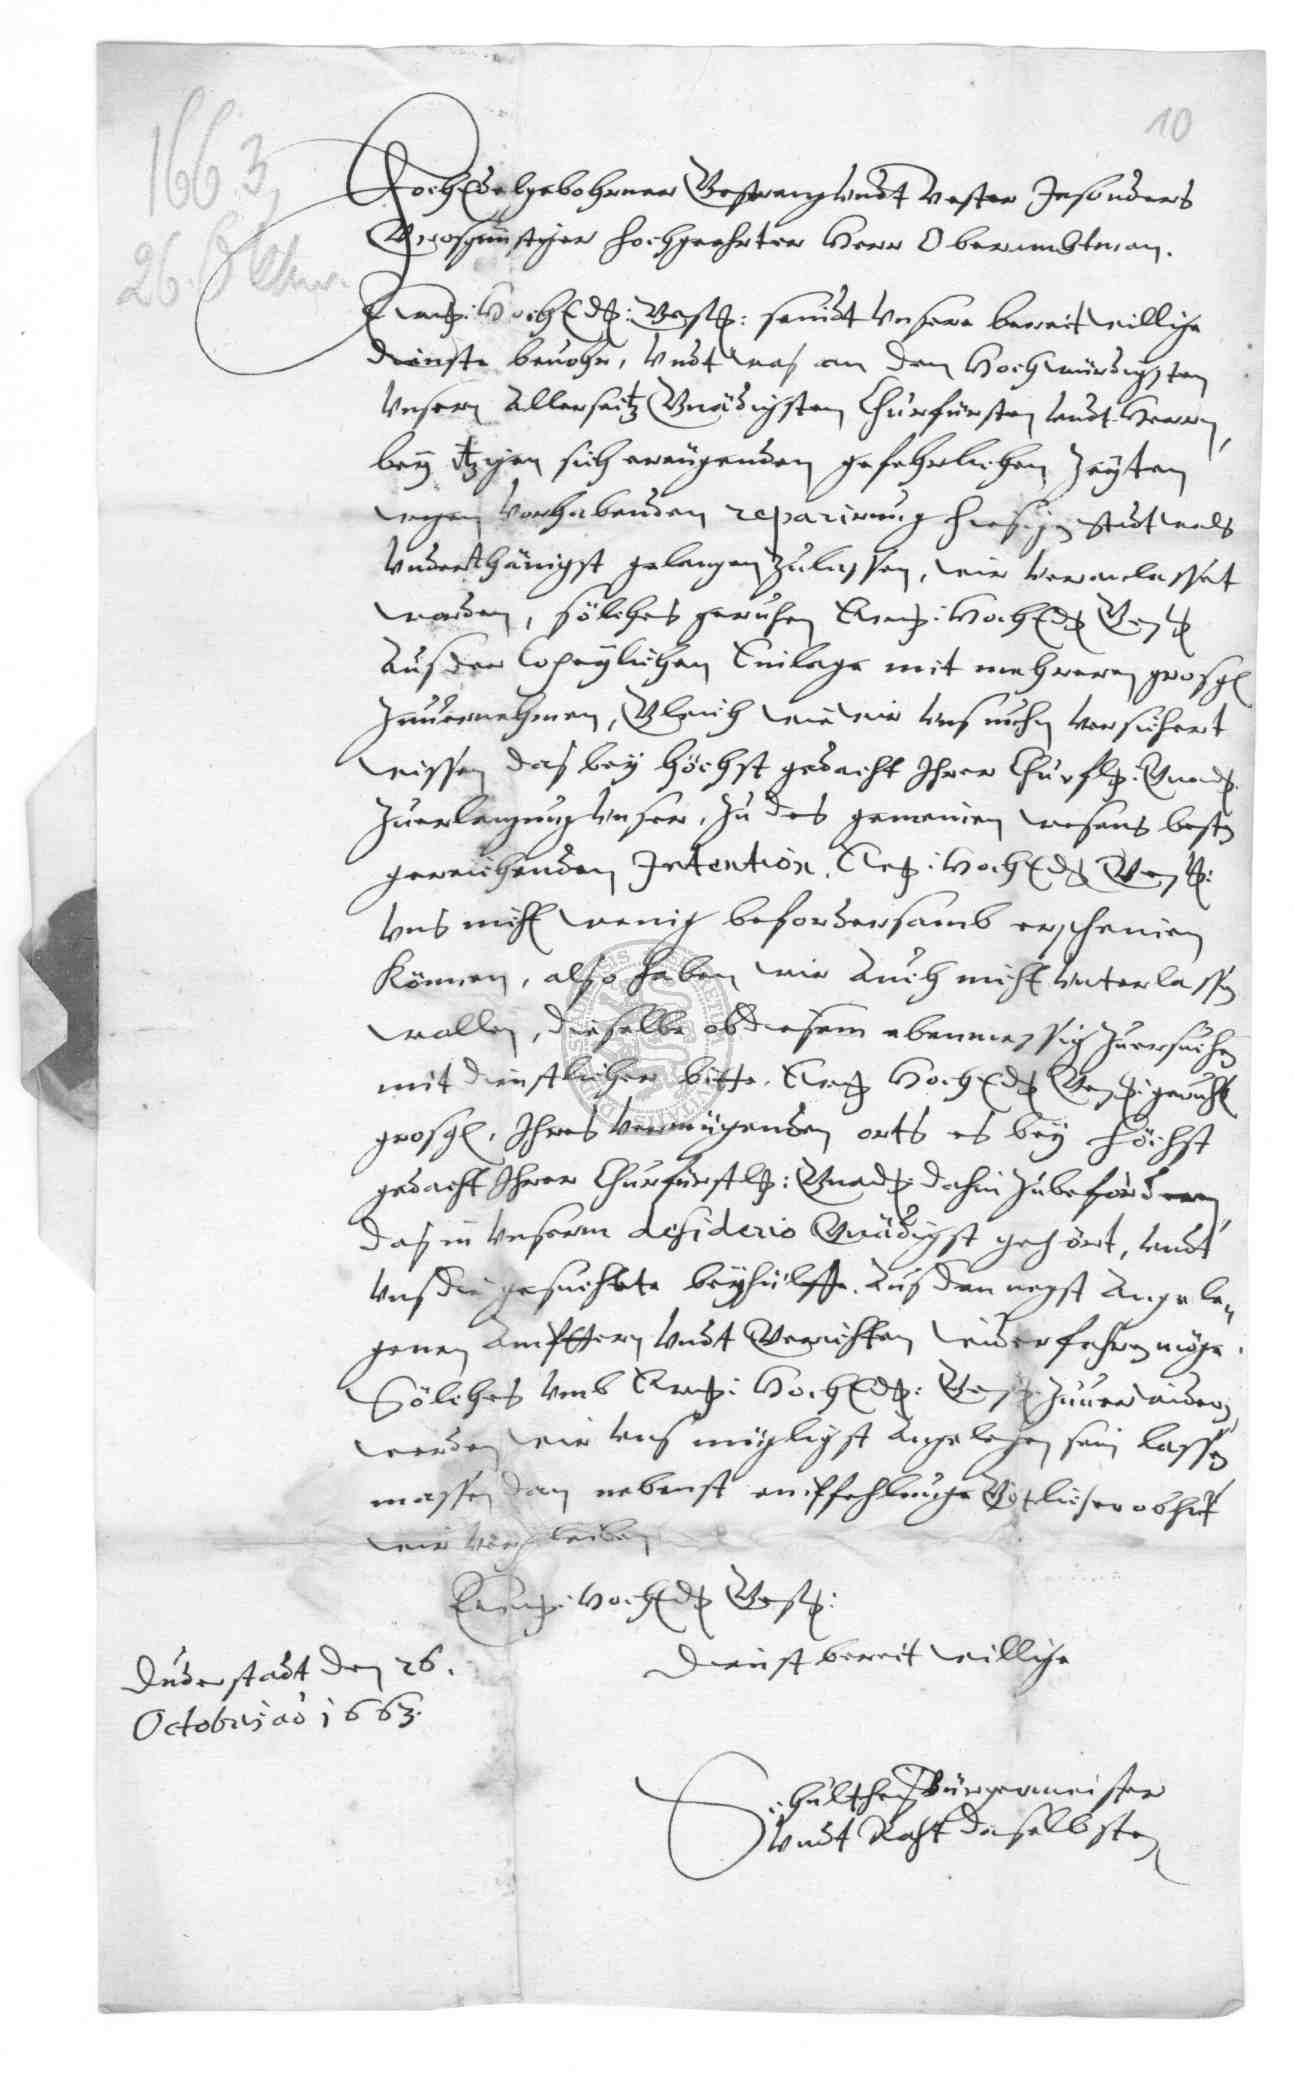 1663
26. Octbr.
10
HochEdelgebohrner Gestreng vndt Vester Insonders
Grosgünstiger hochgeehrter Herr Oberambtman.
Ewrß: HochEdß: Gestß: seindt vnsere bereitwillige
dienste beuohr, vndt was an den Hochwürdigsten
vnsern Allerseitz Gnädigsten Churfürsten vndt Herrn,
bey itzigen sich ereügenden gefehrlichen Zeyten
wegen vorhabenden reparirung hiesigen Stadtwals
vnderthänigst gelangen Zulassen, wir veranlasset
worden, sölches geruhen Ewrß: HochEdß Gestß
Auß der Copeylichen Einlage mit mehreren grosgl
Zuuernehmen, Gleich wie wir vns nuhn versichert
wissen daß bey höchst gedacht Ihrer Churflß. Gnadß.
Zuerlangung vnser, Zu des gemeinen wesens besten
gereichenden Intention, Ewrß: HochEdß Gestß:
vns nicht wenig befordersamb erscheinen
können, also haben wir Auch nicht vnterlassen
wollen, dieselbe ob diesem ebenmessig Zuersuchen
mit dienstlicher bitte, Ewrß HochEdß Gestß: geruhe
grosgl. Ihres vermügenden orts es bey höchst
gedacht Ihrer Churfürstlß: Gnadß: dahin Zubefördern,
daß in vnserm desiderio Gnädigst gehört, vndt
vns die gesuchte beyhülffe, Auß den negst Angele-
genen Ambttern vndt Gerichten wiederfahren möge.
Sölches vmb Ewrß: HochEdß: Gestß: Zuuerdienen
werden wir vns mügligst Angelegen sein lassen
massen dan nebenst empfehlunge Götlicher obhut
wir verbleiben
Ewrß: HochEdß Gestß:
Dienstbereitwillige
Duderstadt den 26.
Octobris ao 1663.
Schultheiß Bürgermeister
vndt Raht daselbsten